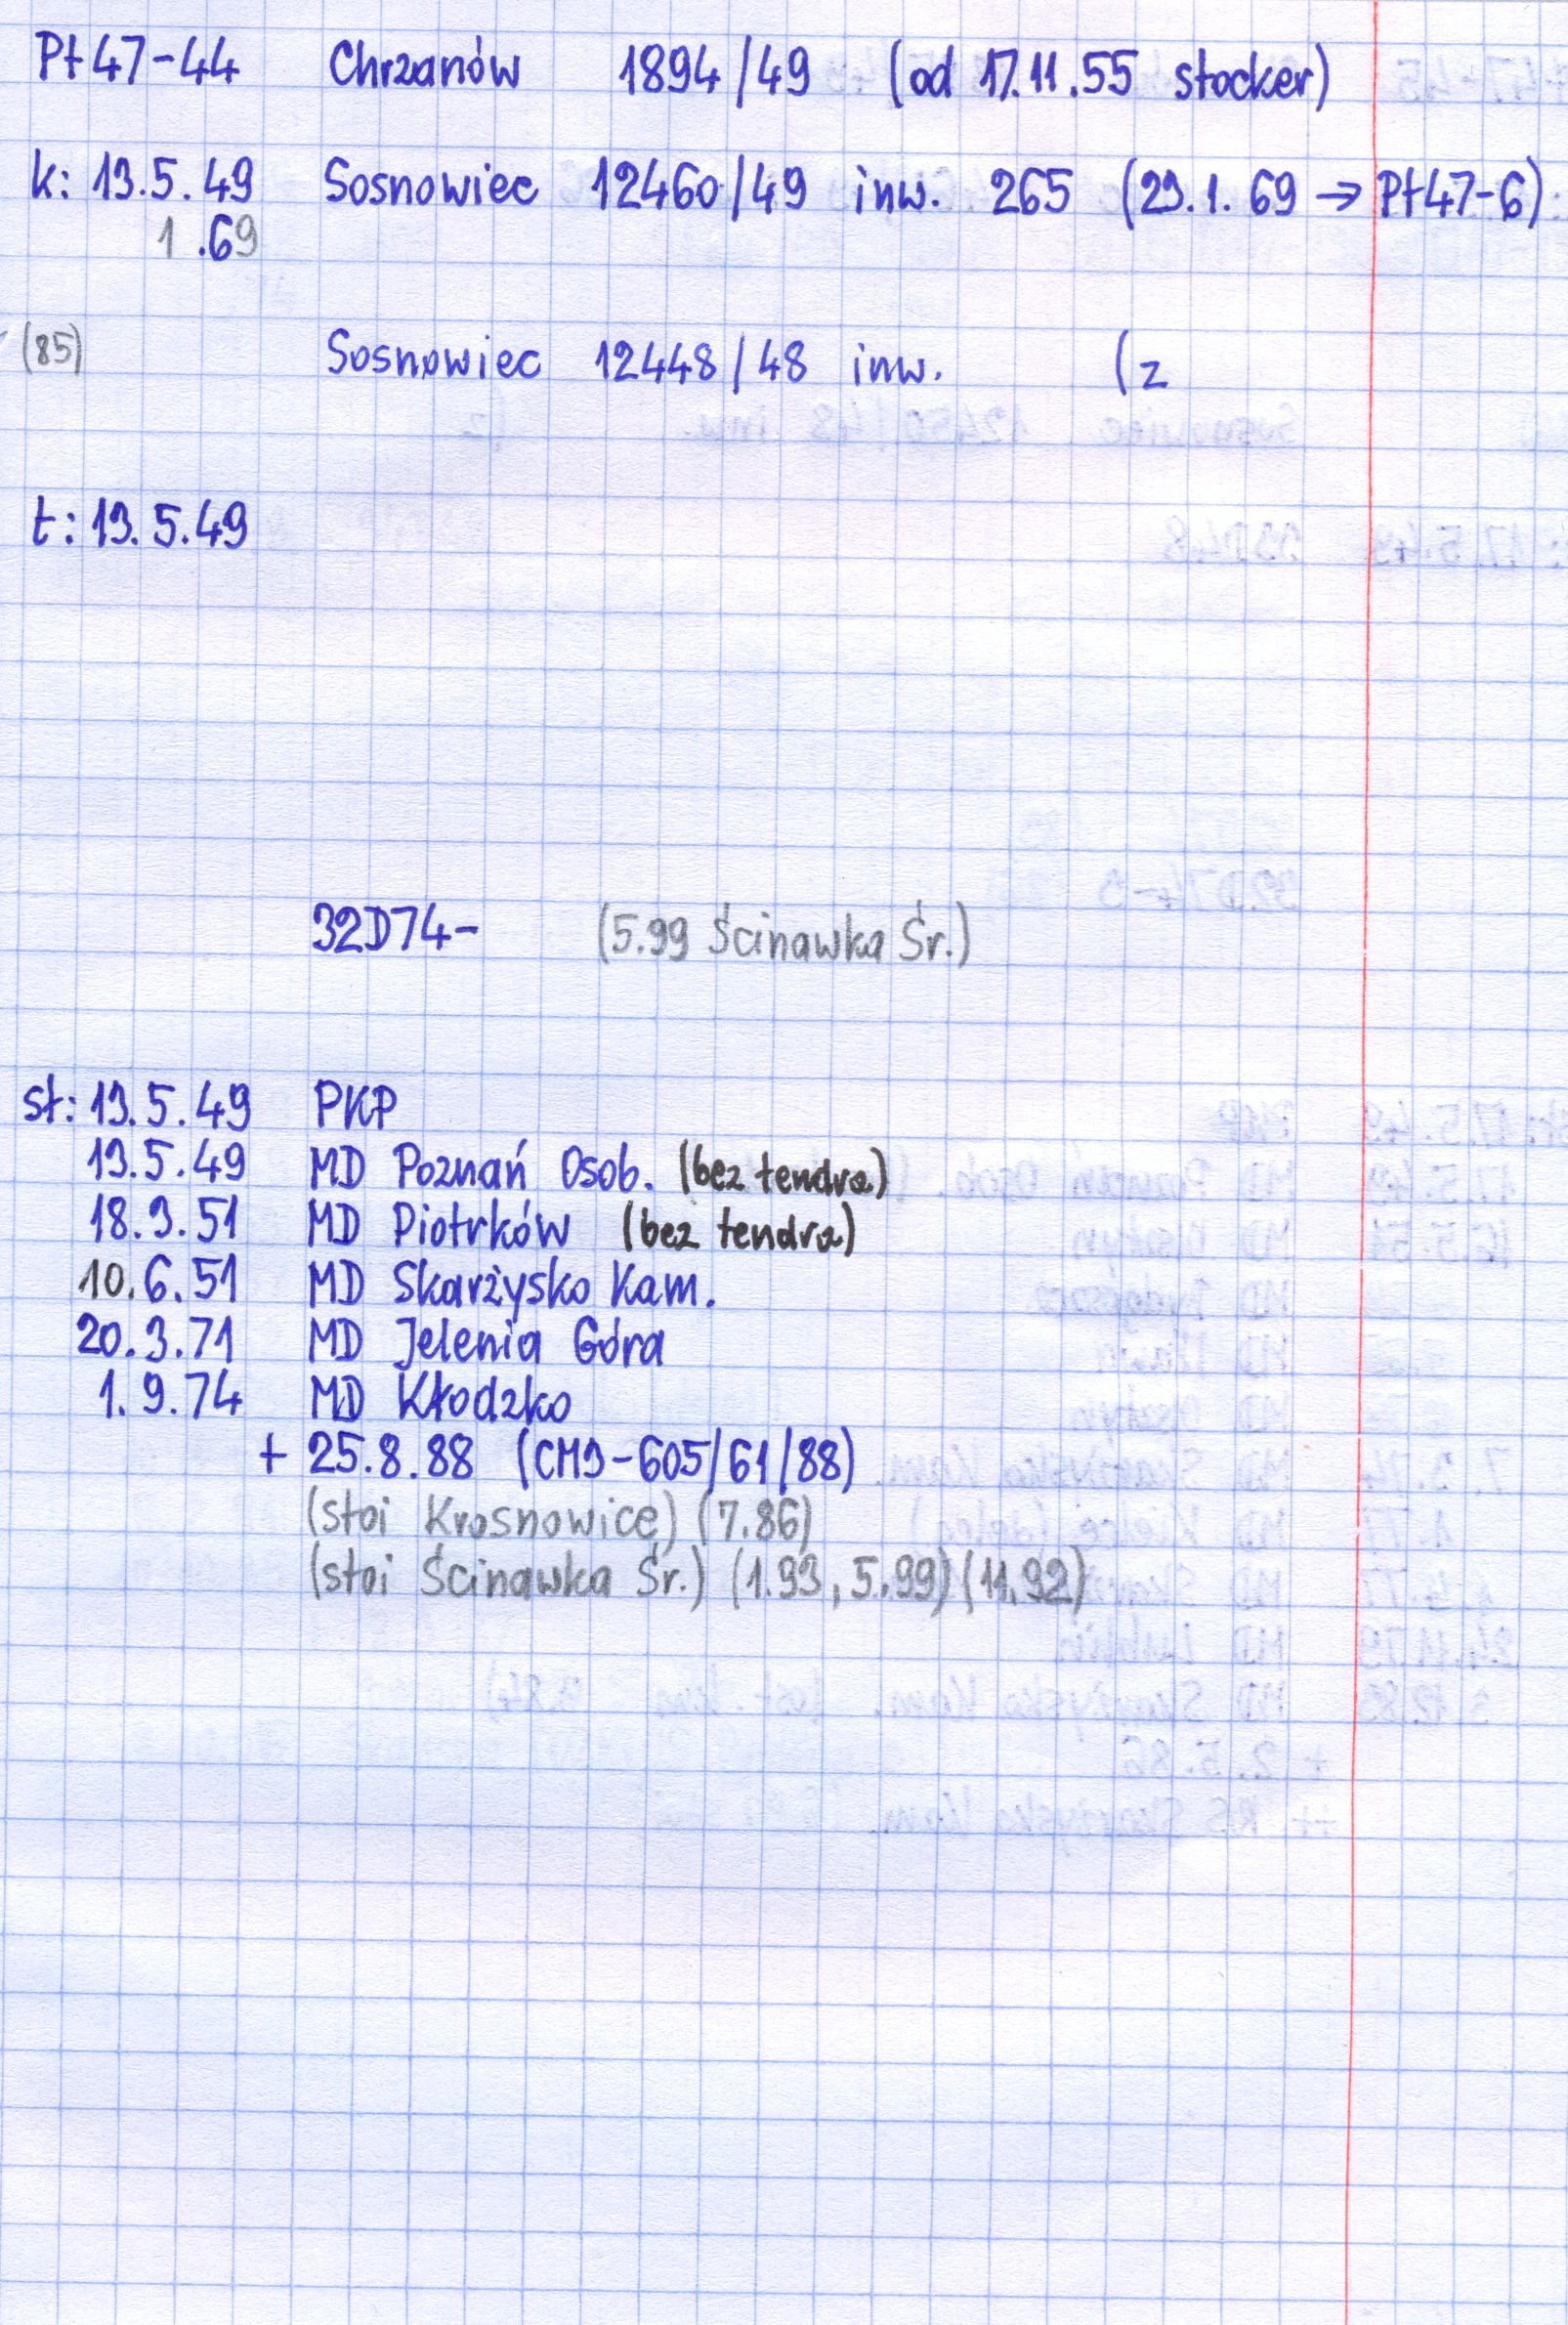 Pt47-44 Chrzanów 1894/49 (od 17.11.55 stocker)
k: 13.5.49 Sosnowiec 12460/49 inw. 265 (29.1.69 → Pt47-6)
1 .69
(85) Sosnowiec 12448/48 inw. (z
t: 13.5.49
32D74- (5.99 Ścinawka Śr.)
st: 13.5.49 PKP
13.5.49 MD Poznań Osob. (bez tendra)
18.3.51 MD Piotrków (bez tendra)
10.6.51 MD Skarżysko Kam.
20.3.71 MD Jelenia Góra
1.9.74 MD Kłodzko
+ 25.8.88 (CM3-605/61/88)
(stoi Krosnowice) (7.86)
(stoi Ścinawka Śr.) (1.93, 5.99) (11.92)